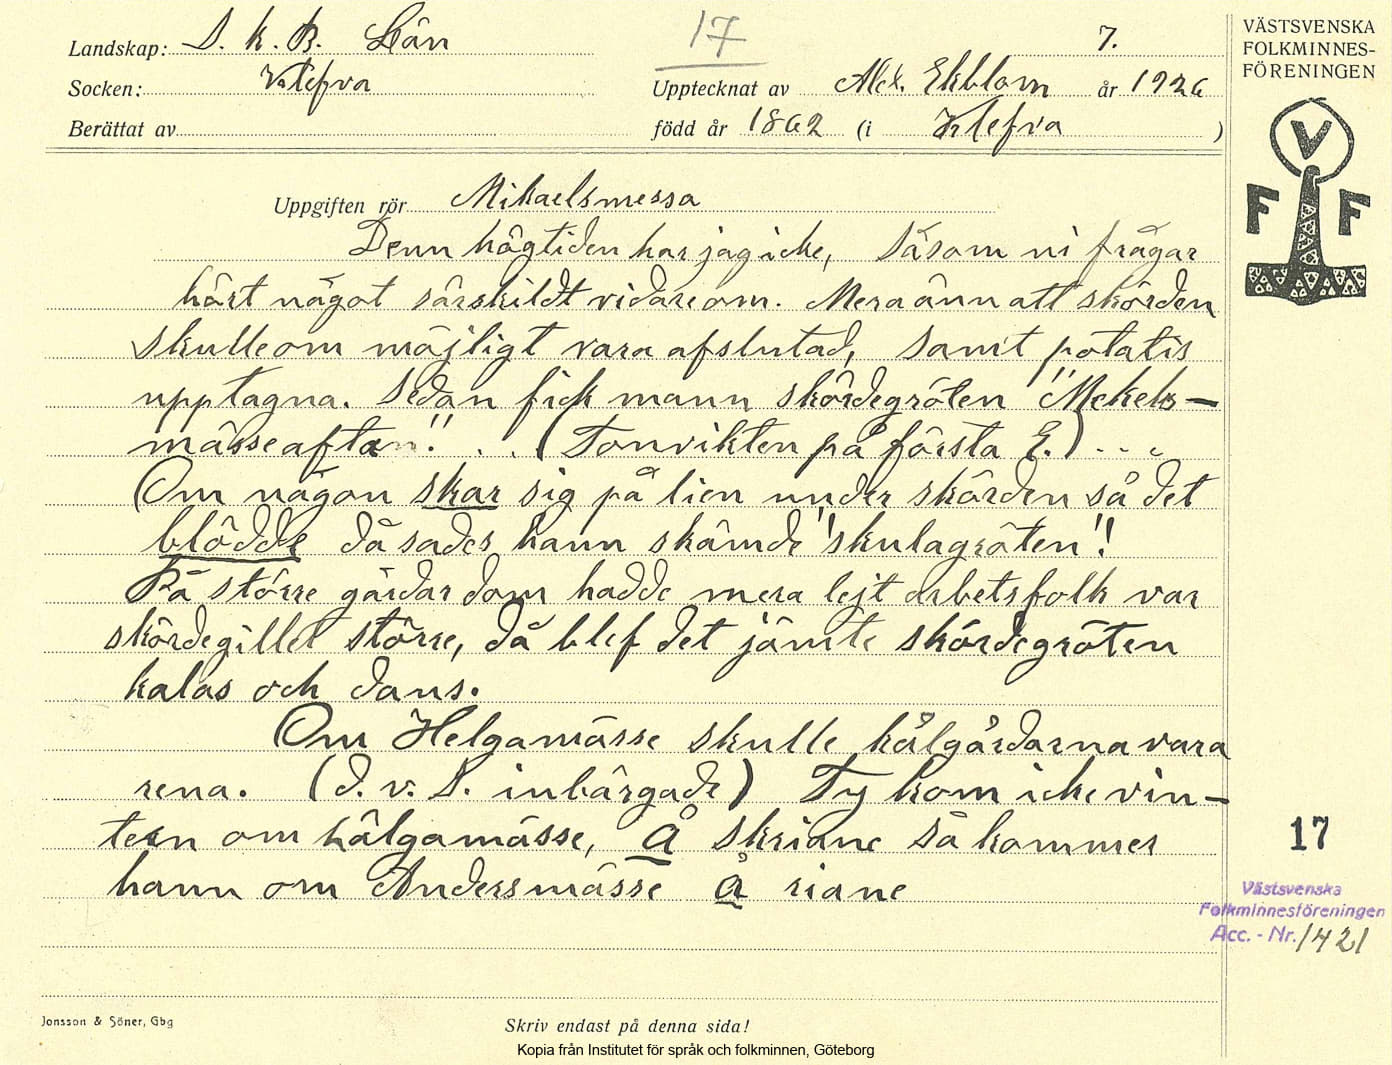 Landskap: S. k. B. Län
17
7.
Socken: Klefva
Upptecknat av Alex. Ekblom år 1926
Berättat av
född år 1862 (i Klefva )
VÄSTSVENSKA
FOLKMINNES-
FÖRENINGEN
V
F F
Uppgiften rör Mikaelsmessa
Denn högtiden har jag icke, såsom ni frågar
hört något särskildt vidare om. Mera änn att skörden
skulle om möjligt vara afslutad, samt potatis
upptagna. Sedan fick mann skördegröten "Mekels-
mässeaftan". . . (Tonvikten på första E.) . . .
Om någon skar sig på lien under skörden så det
blödde då sades hann skämde "skulagröten"!
På större gårdar dom hadde mera lejt arbetsfolk var
skördegillet större, då blef det jämte skördegröten
kalas och dans.
Om Helgamässe skulle kålgårdarna vara
rena. (d. v. S. inbärgade) Ty kom icke vin-
tern om hälgamässe, Å skriane så kommer
hann om Andersmässe å riane
17
Västsvenska
Folkminnesföreningen
Acc. - Nr. 1421
Jonsson & Söner, Gbg
Skriv endast på denna sida!
Kopia från Institutet för språk och folkminnen, Göteborg